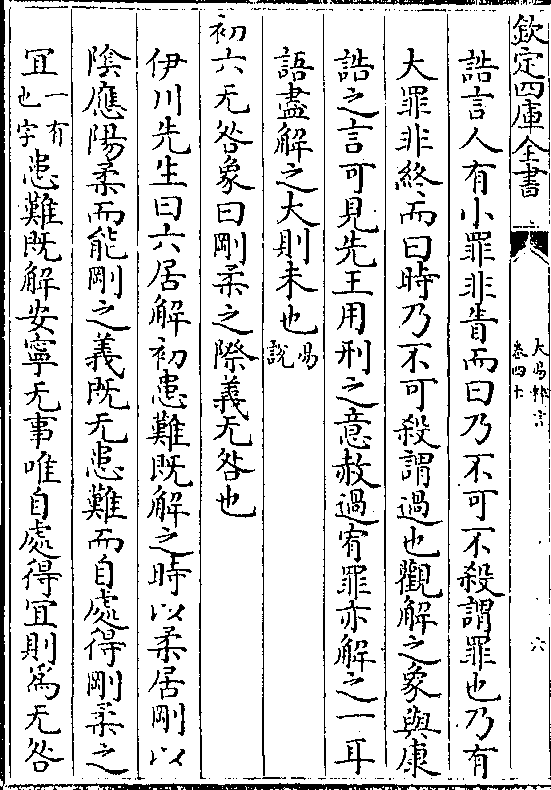 欽定四庫全書
大易粹言
卷四十
六
誥言人有小罪非眚而曰乃不可不殺謂罪也乃有
大罪非終而曰時乃不可殺謂過也觀解之象與康
誥之言可見先王用刑之意赦過宥罪亦解之一耳
語盡解之大則未也易說
初六无咎象曰剛柔之際義无咎也
伊川先生曰六居解初患難既解之時以柔居剛以
陰應陽柔而能剛之義既无患難而自處得剛柔之
宜一有也字患難既解安寧无事唯自處得宜則為无咎